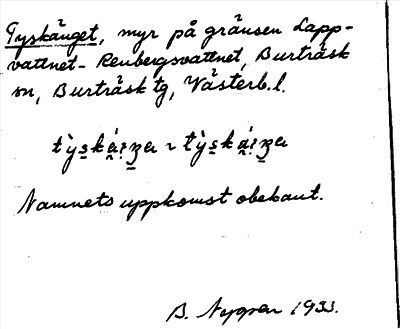 Tyskänget, myr på gränsen Lapp-
vattnet - Renbergsvattnet, Burträsk
sn, Burträsk tg, Västerb.l.
Namnets uppkomst obekant.
B. Nygren 1933.